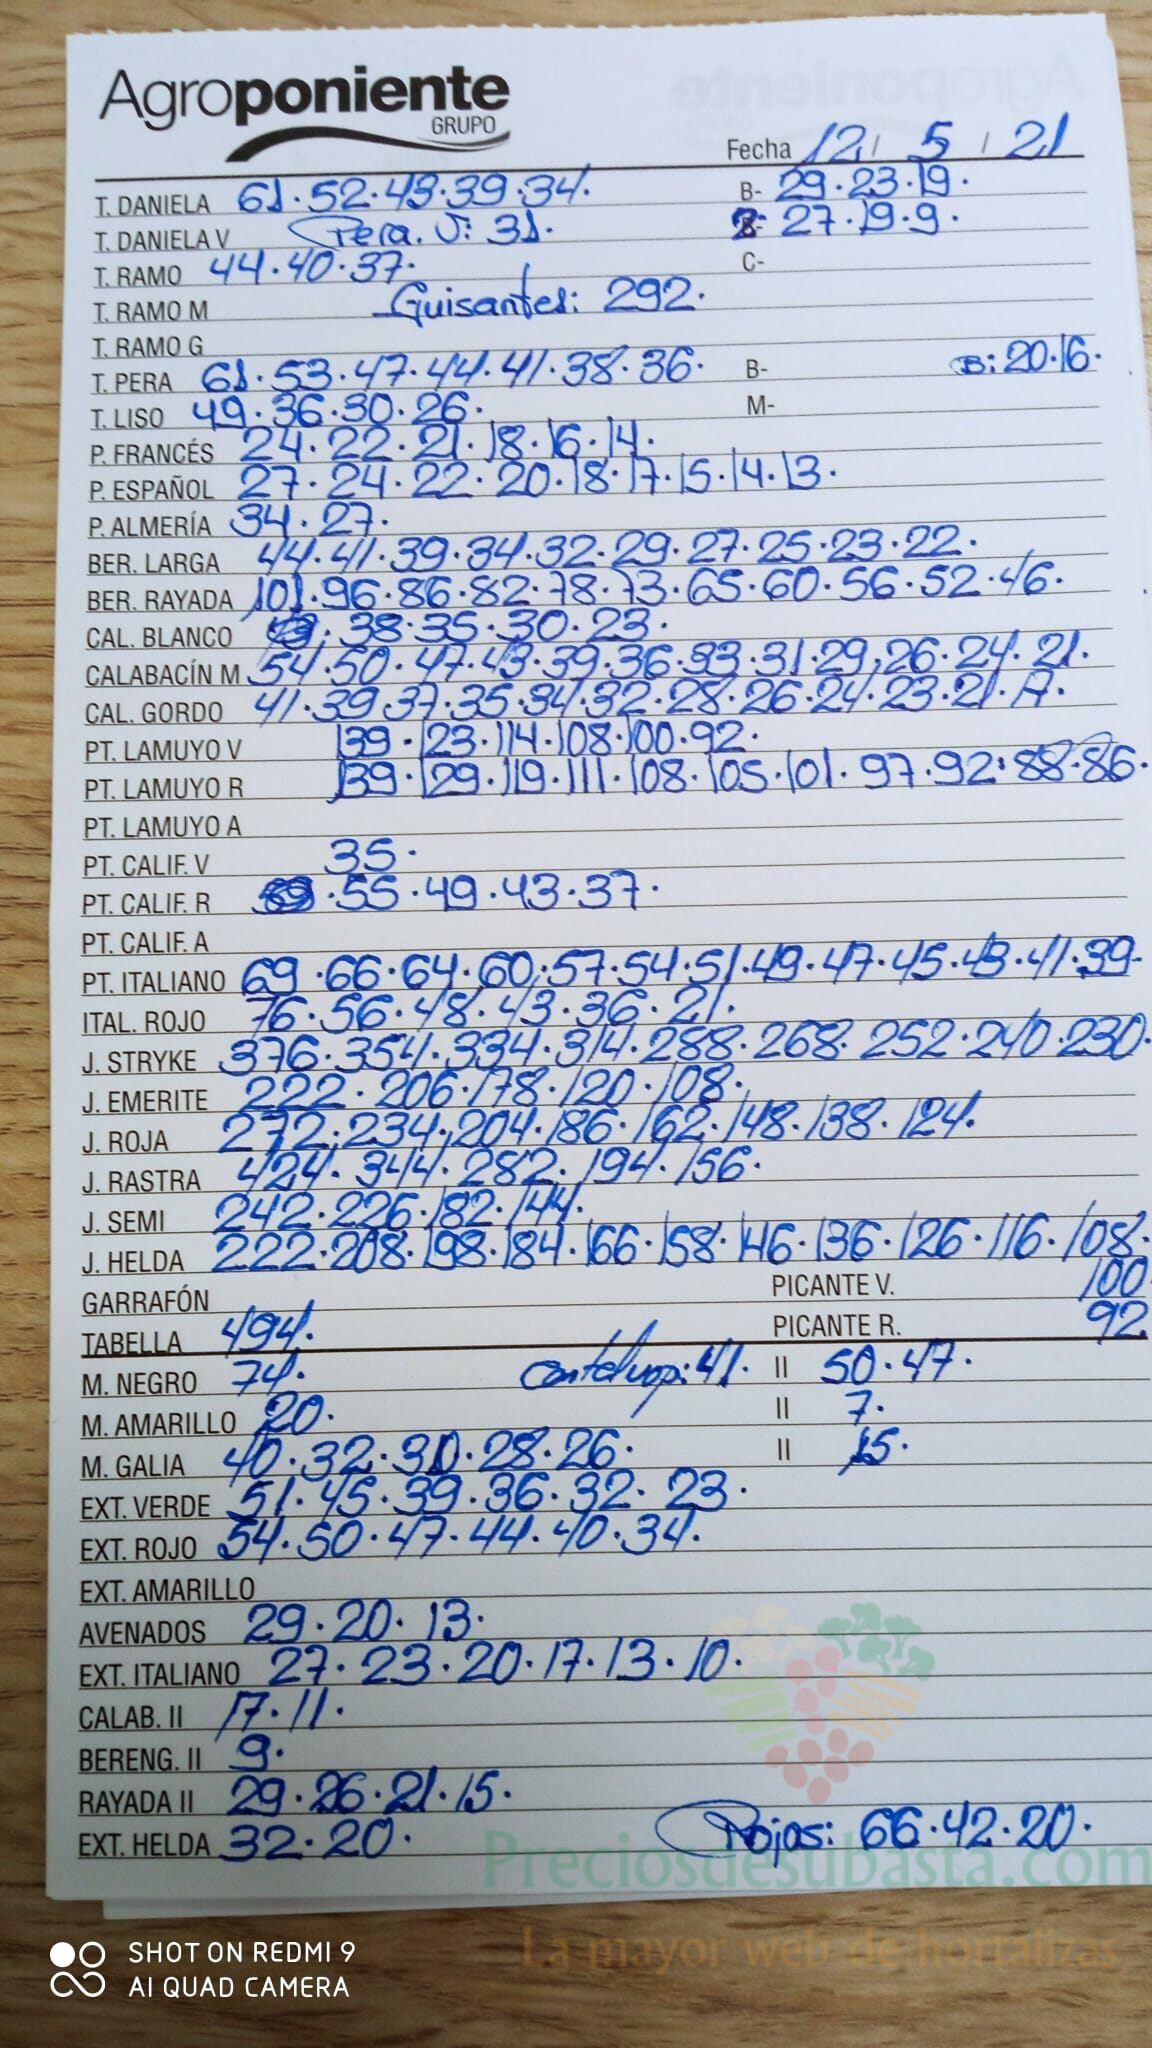 Agroponiente
GRUPO
Fecha 12 / 5 / 21
T. DANIELA 61.52.43.39.34. B- 29.23.19.
T. DANIELA V Pera. V: 31. 27.19.9.
T. RAMO 44.40.37. C-
T. RAMO M Guisantes: 292.
T. RAMO G
T. PERA 61.53.47.44.41.38.36. B- B: 20.16.
T. LISO 49.36.30.26. M-
P. FRANCÉS 24.22.21.18.16.14.
P. ESPAÑOL 27.24.22.20.18.17.15.14.13.
P. ALMERÍA 34.27.
BER. LARGA 44.41.39.34.32.29.27.25.23.22.
BER. RAYADA 101.96.86.82.78.73.65.60.56.52.46.
CAL. BLANCO 38.35.30.23.
CALABACÍN M 54.50.47.43.39.36.33.31.29.26.24.21.
CAL. GORDO 41.39.37.35.34.32.28.26.24.23.21.17.
PT. LAMUYO V 139.123.114.108.100.92.
PT. LAMUYO R 139.129.119.111.108.105.101.97.92.88.86.
PT. LAMUYO A
PT. CALIF. V 35.
PT. CALIF. R .55.49.43.37.
PT. CALIF. A
PT. ITALIANO 69.66.64.60.57.54.51.49.47.45.43.41.39-
ITAL. ROJO 76.56.48.43.36.21.
J. STRYKE 376.354.334.314.288.268.252.240.230.
J. EMERITE 222.206.178.120.108.
J. ROJA 272.234.204.186.162.148.138.124.
J. RASTRA 424.344.282.194.156.
J. SEMI 242.226.182.144.
J. HELDA 222.208.198.184.166.158.146.136.126.116.108.
GARRAFÓN PICANTE V. 100
TABELLA 494. PICANTE R. 92
M. NEGRO 74. Cantelup: 41. II 50.47.
M. AMARILLO 20. II 7.
M. GALIA 40.32.30.28.26. II 15.
EXT. VERDE 51.45.39.36.32.23.
EXT. ROJO 54.50.47.44.40.34.
EXT. AMARILLO
AVENADOS 29.20.13.
EXT. ITALIANO 27.23.20.17.13.10.
CALAB. II 17.11.
BERENG. II 9.
RAYADA II 29.26.21.15.
EXT. HELDA 32.20. Rojas: 66.42.20.
Preciosdesubasta.com
La mayor web de hortalizas
SHOT ON REDMI 9
AI QUAD CAMERA